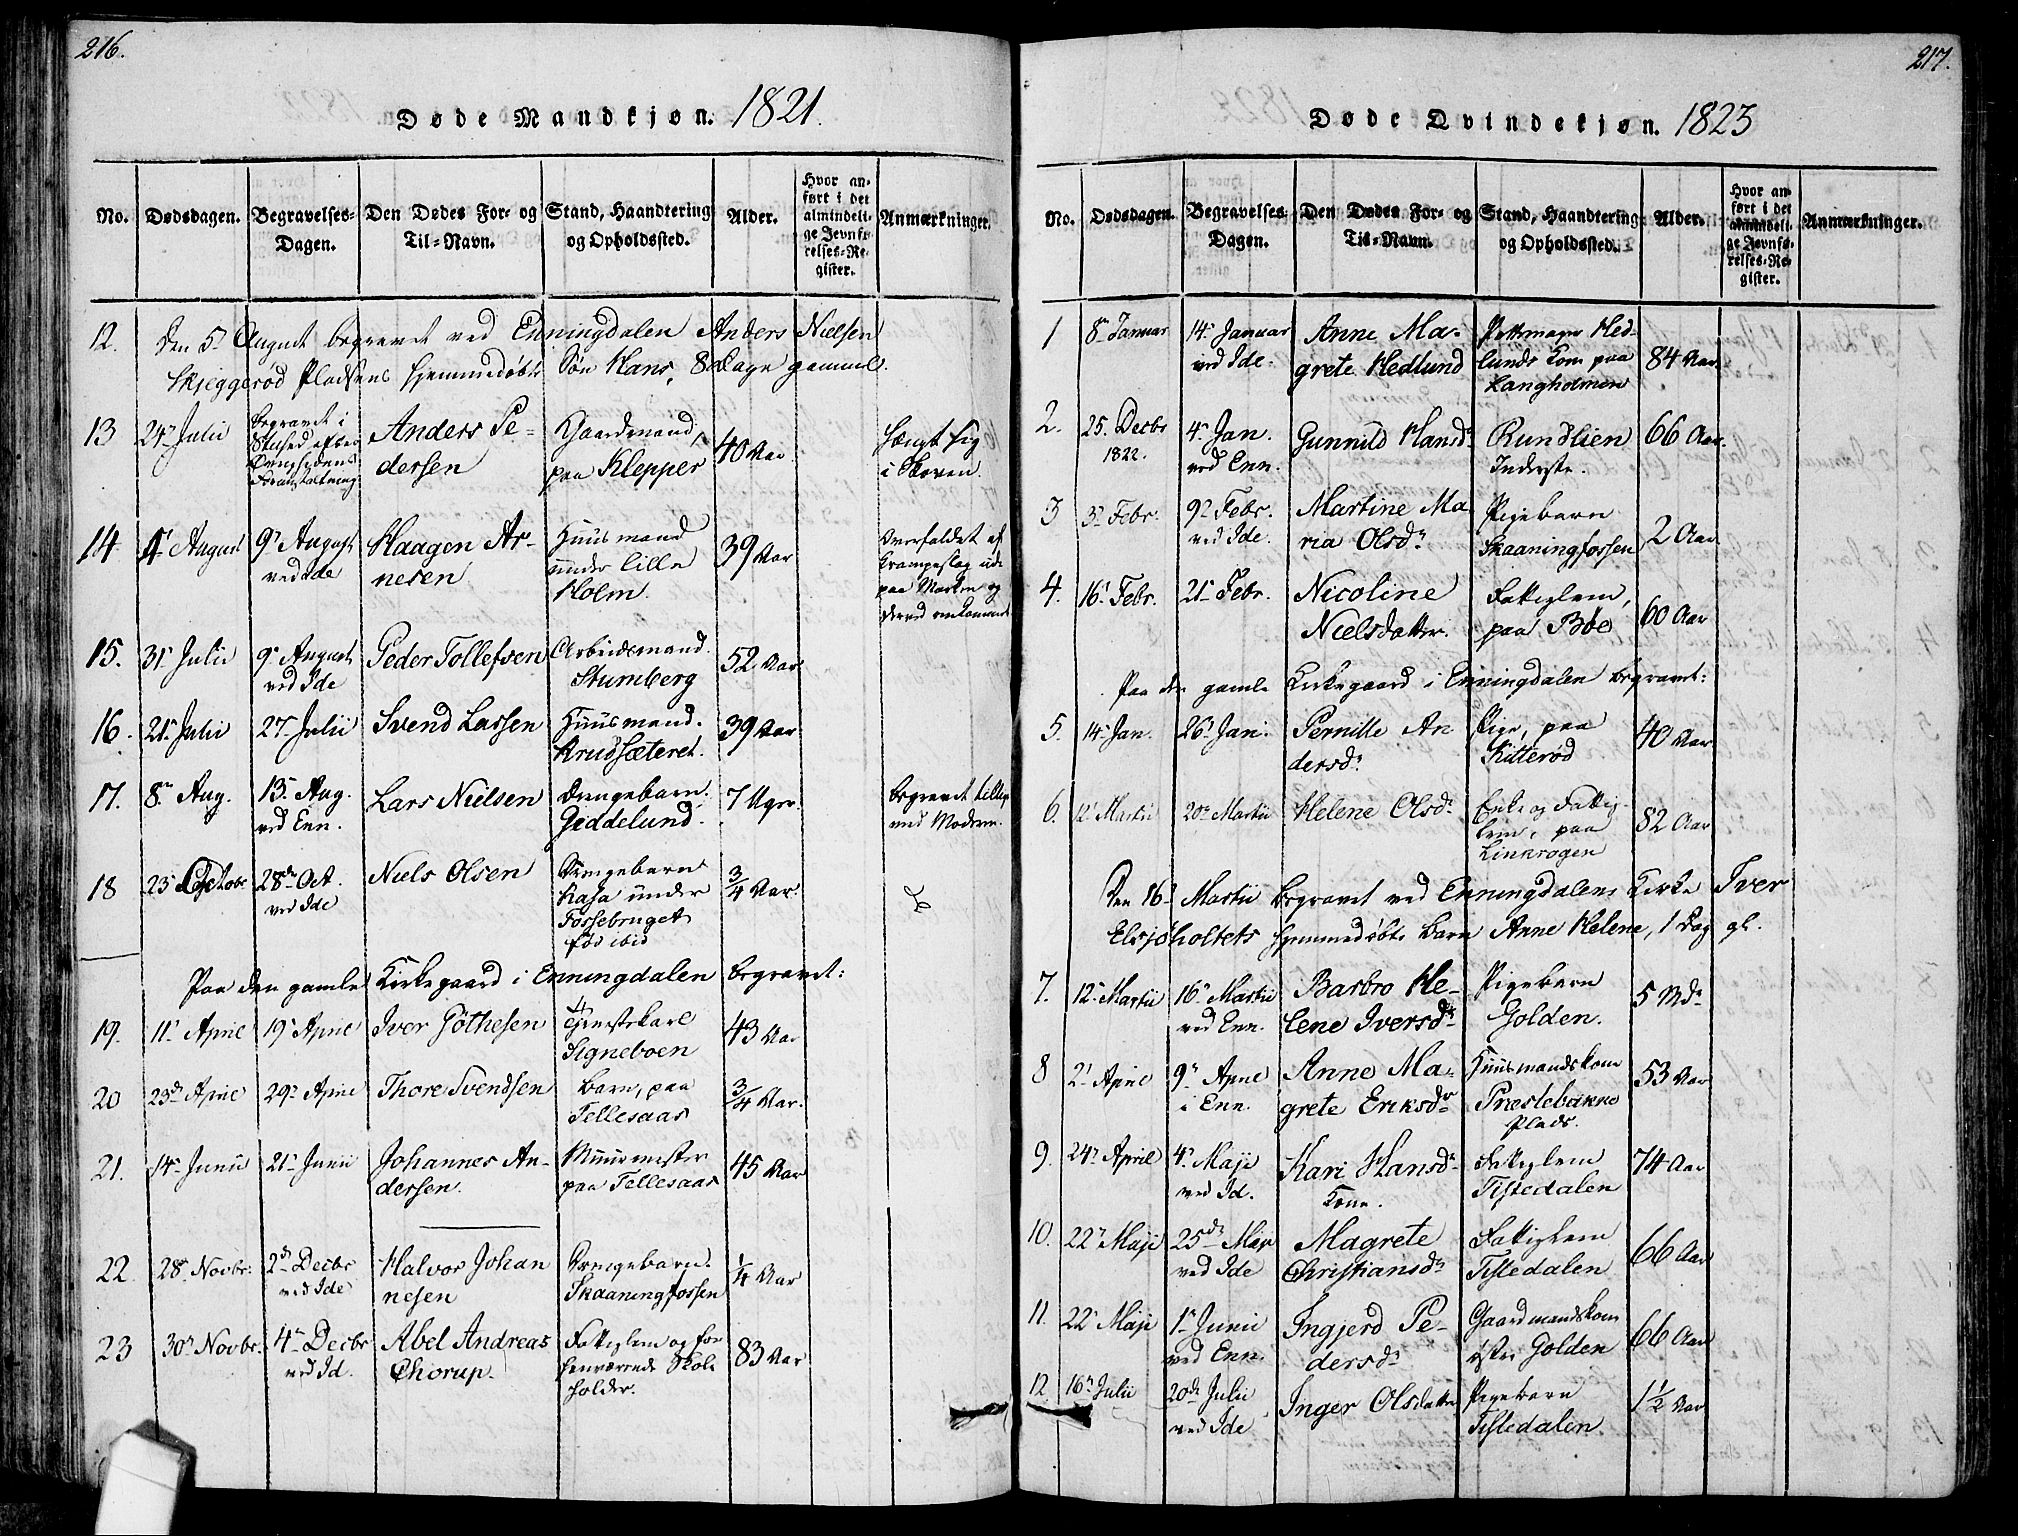 216.
Døde Mandkjøn. 1821.
No.
Dødsdagen.
Begravelses-
Dagen.
Den Dødes For- og
Til-Navn.
Stand, Haandtering
og Opholdssted.
Alder.
Hvor an-
ført i det
almindeli-
ge Jevnfø-
relses-Re-
gister.
Anmærkninger.
12. Den 5 August begravet ved Enningdalen Anders Nielsen
Skjeggerød Pladsens hjemmedøbte Søn Hans, 8 Dage gammel.
13 24 Julii
begravet i
Stilhed efter
Øvrighedens
Foranstaltning
Anders Pe-
dersen
Gaardmand,
paa Klepper
40 Aar
hængt sig
i Skoven.
14. 4 August
9 August
ved Ide
Haagen Ar-
nesen
Huusmand
under lille
Holm.
39 Aar
Overfaldet af
Krampeslag ude
paa Marken og
derved omkommet
15. 31 Julii
9 August
ved Ide
Peder Tollefsen
Arbeidsmand.
Stumberg
52 Aar
16. 21 Julii
27 Julii
Svend Larsen
Huusmand.
Krudsæteret.
39 Aar
17. 8 Aug.
13. Aug.
ved Enn.
Lars Nielsen
Drengebarn.
Geddelund.
7 Uger.
begravet tillige
med Moderen.
18 23 Octobr
28de Oct.
ved Ide
Niels Olsen
Drengebarn
Kasa under
Fossebruget
fød ibid
3/4 Aar
Paa den gamle Kirkegaard i Enningdalen begravet:
19. 11 April
19 April
Iver Gøthesen
Tjenestekarl
Signeboen
43 Aar
20 23de April
29 April
Thore Svendsen
barn, paa
Tellesaas
3/4 Aar.
21. 14 Junii
21 Junii
Johannes An-
dersen.
Muurmester
paa Tellesaas
45 Aar
22. 28 Novbr.
2de Decbr
ved Ide
Halvor Johan
nesen
Drengebarn.
Skaaningfossen
1/4 Aar
23 30 Novbr.
4 Decbr
ved Id.
Abel Andreas
Chorup.
Fattiglem og for
henværende Skole
holder.
83 Aar
217.
Døde Qvindekjøn. 1823
No.
Dødsdagen.
Begravelses-
Dagen.
Den Dødes For- og
Til-Navn.
Stand, Haandtering
og Opholdssted.
Alder.
Hvor an-
ført i det
almindeli-
ge Jevnfø-
relses-Re-
gister.
Anmærkninger.
1 8 Januar
14 Januar
ved Ide.
Anne Ma-
grete Hedlund
Hed-
lunds Kone paa
Langholmen
84 Aar
2. 25. Decbr
1822.
4 Jan.
ved Enn.
Gunnild Hansd.
Rundlien
Inderste.
66 Aar.
3 3 Febr.
9 Febr.
ved Ide.
Martine Ma
ria Olsd.
Pigebarn
Skaaningfossen
2 Aar
4. 16 Febr.
21 Febr.
Nicoline
Nielsdatter.
Fattiglem,
paa Bøe
60 Aar
Paa den gamle Kirkegaard i Enningdalen begravet:
5. 14 Jan.
26 Jan.
Pernille An
dersd.
Pige, paa
Kitterød
40 Aar
6. 12 Martii
20 Martii
Helene Olsd.
Enke og Fattig-
lem, paa
Linkrogen
82 Aar
Den 16 Martii begravet ved Enningdalens Kirke Iver
Elvsjøholtets hjemmedøbte barn Anne Helene, 1 Dag gl.
7. 12 Martii
16 Martii
ved Enn.
Barbro He-
lene Iversd.
Pigebarn
Golden.
5 Md.
8 2 April
9 April
i Enn.
Anne Ma-
grete Eriksd.
Huusmandskone
Præstebakke
Plads.
53 Aar
9. 24 April
4 Maji
ved Id.
Kari Hansd.
Kone.
Fattiglem
Tistedalen
74 Aar
10. 22 Maji
25de Mai
ved Ide
Magrete
Christiansd.
Fattiglem
Tistedalen
66 Aar
11. 22 Maji
1 Junii
ved Enn.
Ingjerd Pe-
dersd.
Gaardmandskone
østre Golden
66 Aar
12 16 Julii
20de Julii
ved Ide
Inger Olsdatter
Pigebarn
Tistedalen.
1 1/2 Aar